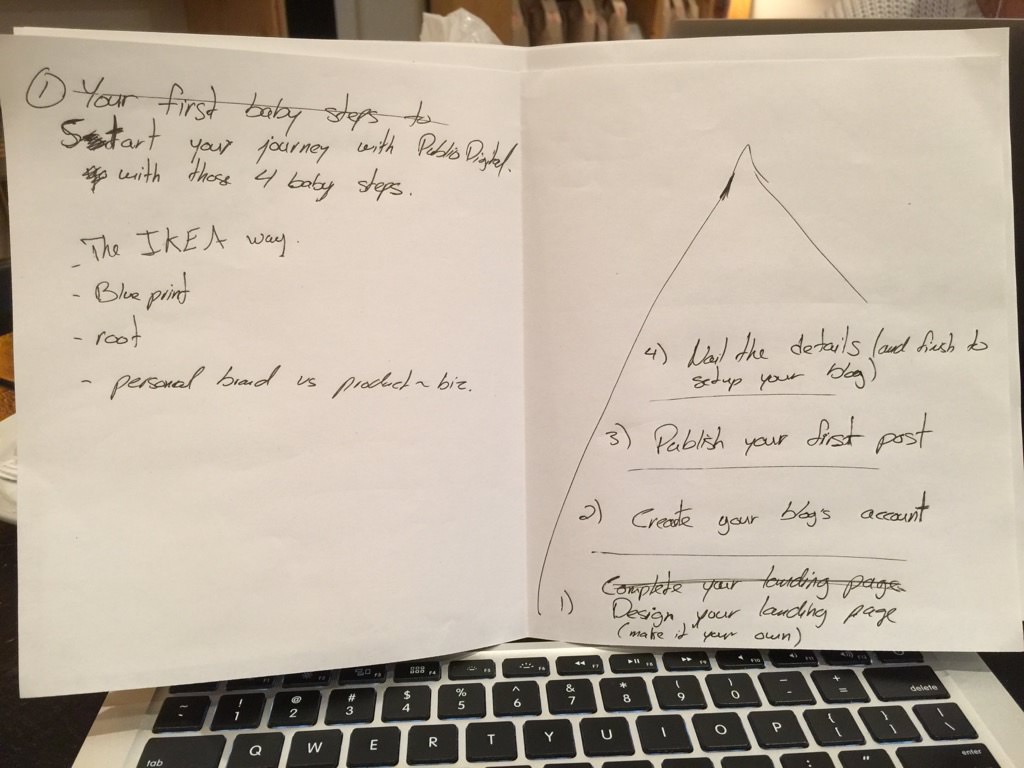 ① Your first baby steps to
Start your journey with Publio Digital.
with those 4 baby steps.
- The IKEA way.
- Blue print
- root
- personal brand vs product ~ biz.
4) Nail the details (and finish to
setup your blog)
3) Publish your first post
2) Create your blog's account
Complete your landing page
1) Design your landing page
(make it your own)
F5
F6
F7
F8
F9
F10
F11
F12
~
! 1
@ 2
# 3
$ 4
% 5
^ 6
& 7
* 8
( 9
) 0
_ -
+ =
delete
tab
Q
W
E
R
T
Y
U
I
O
P
{ [
} ]
| \
enter